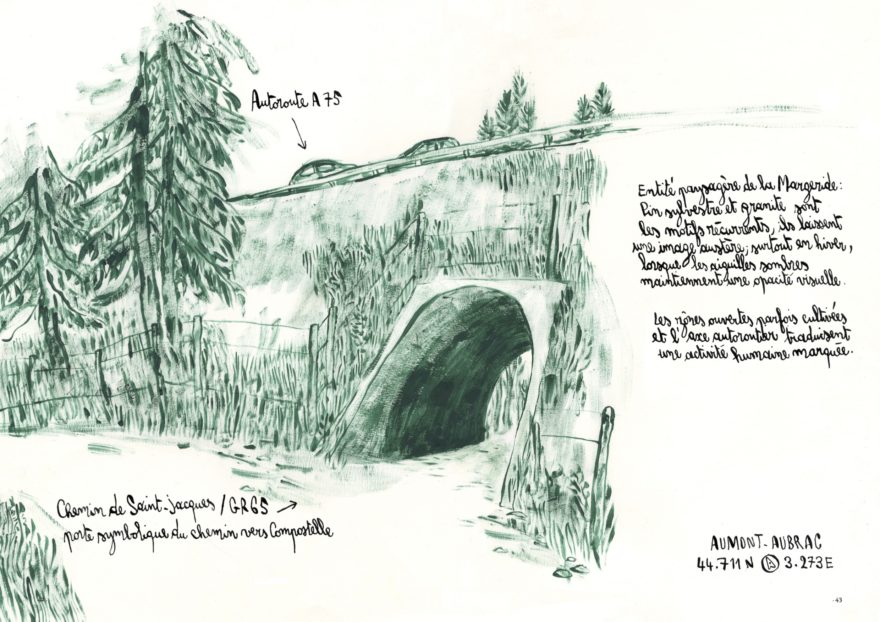 Autoroute A75
Entité paysagère de la Margeride:
Pin sylvestre et granite sont
les motifs récurrents, ils laissent
une image austère, surtout en hiver,
lorsque les aiguilles sombres
maintiennent une opacité visuelle.
Les zones ouvertes parfois cultivées
et l'axe autoroutier traduisent
une activité humaine marquée.
Chemin de Saint-Jacques / GR65
porte symbolique du chemin vers Compostelle
AUMONT-AUBRAC
44.711 N A 3.273 E
43